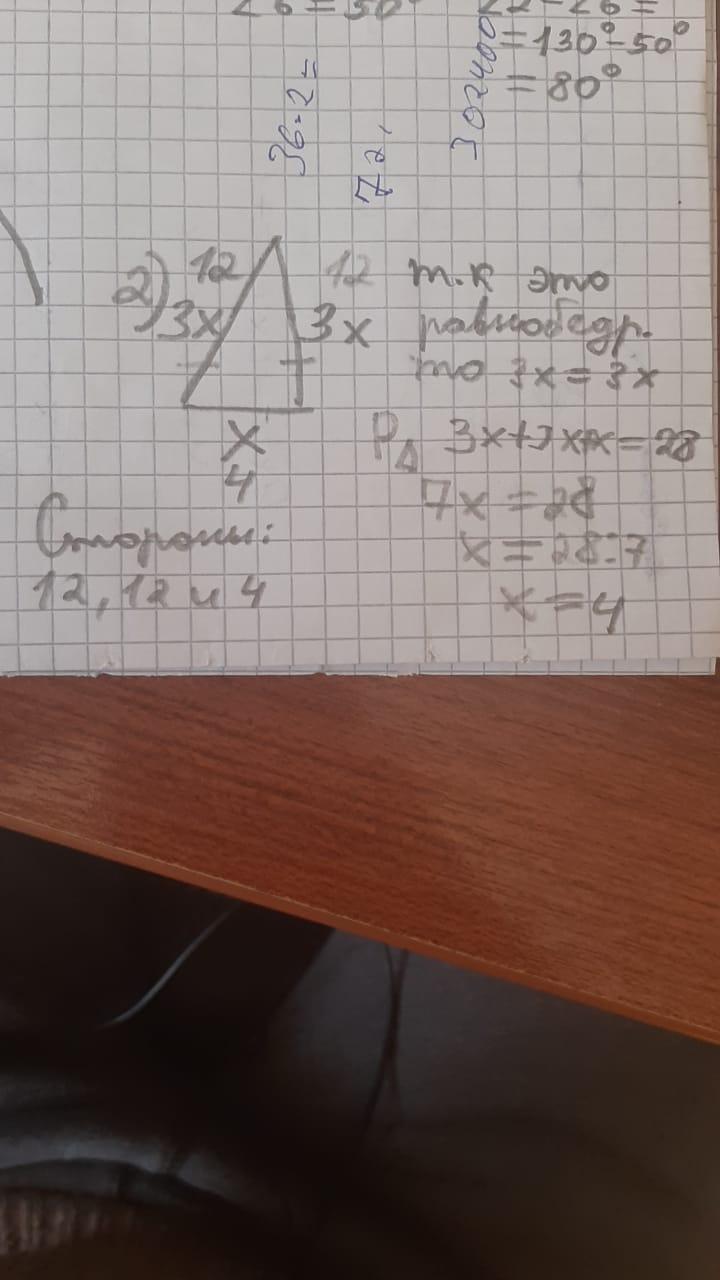 = 130° - 50°
= 80°
36:2=
302400
2) 12
3x
12
3x
x
4
т.к это
равнобедр.
то 3x = 3x
P△ 3x+3x+x=28
7x = 28
x = 28:7
x = 4
Стороны:
12, 12 и 4